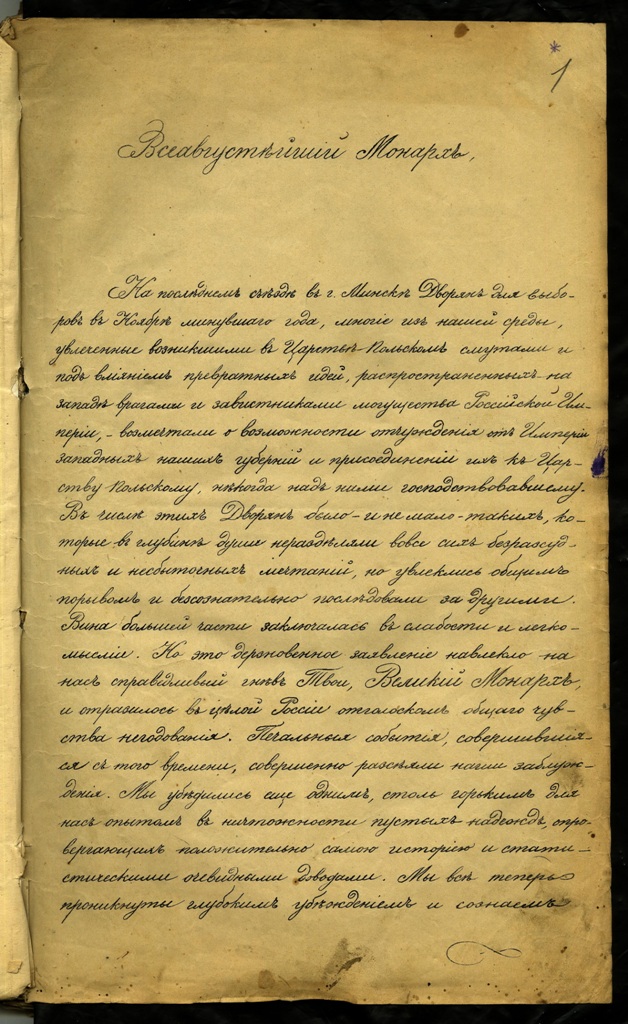 1
Всеавгустѣйшій Монархъ,
На послѣднемъ съѣздѣ въ г. Минскѣ Дворянъ для выбо-
ровъ въ Ноябрѣ минувшаго года, многіе изъ нашей среды,
увлеченные возникшими въ Царствѣ Польскомъ смутами и
подъ вліяніемъ превратныхъ идей, распространенныхъ на
западѣ врагами и завистниками могущества Россійской Им-
періи, - возмечтали о возможности отчужденія отъ Имперіи
западныхъ нашихъ губерній и присоединеніи ихъ къ Цар-
ству Польскому, нѣкогда надъ ними господствовавшему.
Въ числѣ этихъ Дворянъ было - и не мало - такихъ, ко-
торые въ глубинѣ души нераздѣляли вовсе сихъ безразсуд-
ныхъ и несбыточныхъ мечтаній, но увлеклись общимъ
порывомъ и безсознательно послѣдовали за другими.
Вина большей части заключалась въ слабости и легко-
мысліи. Но это дерзновенное заявленіе навлекло на
насъ справедливый гнѣвъ Твой, Великій Монархъ,
и отразилось въ цѣлой Россіи отголоскомъ общаго чув-
ства негодованія. Печальныя событія, совершившія-
ся съ того времени, совершенно разсѣяли наши заблуж-
денія. Мы убѣдились еще однимъ, столь горькимъ для
насъ опытомъ въ ничтожности пустыхъ надеждъ, опро-
вергающихъ положительно самою исторіею и стати-
стическими очевидными доводами. Мы всѣ теперь
проникнуты глубокимъ убѣжденіемъ и сознаемъ